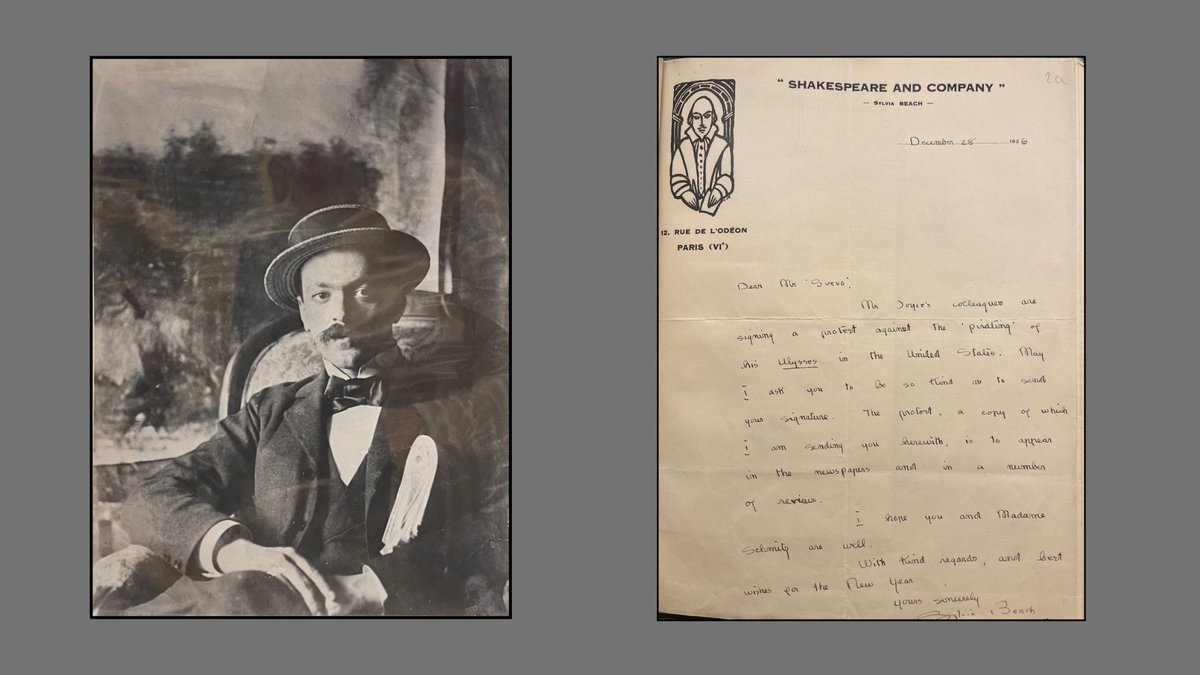 2a
" SHAKESPEARE AND COMPANY "
— SYLVIA BEACH —
December 28 1926
12, RUE DE L'ODÉON
PARIS (VIᵉ)
Dear Mr 'Svevo',
Mr Joyce's colleagues are
signing a protest against the 'pirating' of
his Ulysses in the United States. May
I ask you to be so kind as to send
your signature. The protest, a copy of which
I am sending you herewith, is to appear
in the newspapers and in a number
of reviews.
I hope you and Madame
Schmitz are well.
With kind regards, and best
wishes for the New Year
yours sincerely
Sylvia Beach